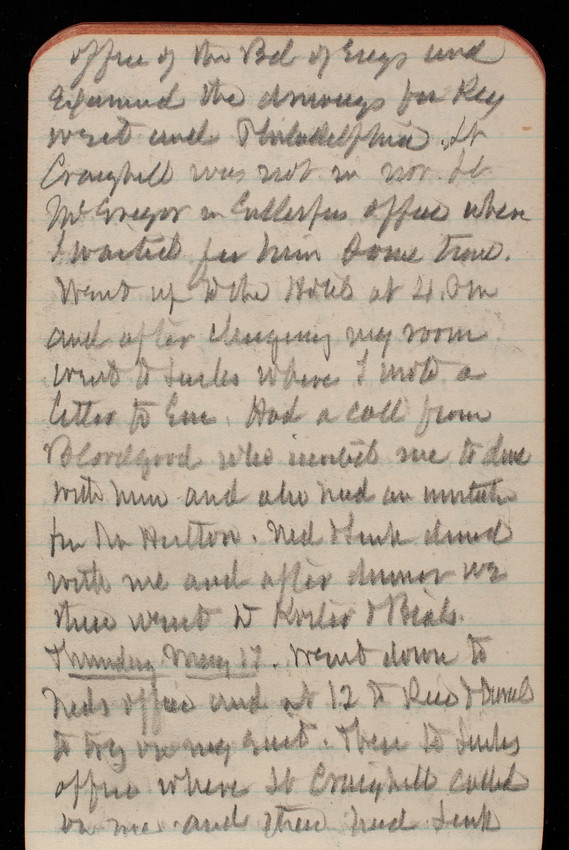 office of the Bd of Engs and
Examined the drawings for Key
west and Philadelphia. Lt
Craighill was not in nor Lt
McGregor in office where
I waited for him some time.
Went up to the Hotel at 4. Pm
and after changing my room
went to where I wrote a
letter to Em. Had a call from
Bloodgood who invited me to dine
with him and also had an
for Hutton. Ned & dined
with me and after dinner we
three went to Koster & Bials.
Thursday May 17. Went down to
Neds office and at 12 to
to try on my suit. Then to
office where Lt Craighill called
on me. and then Ned